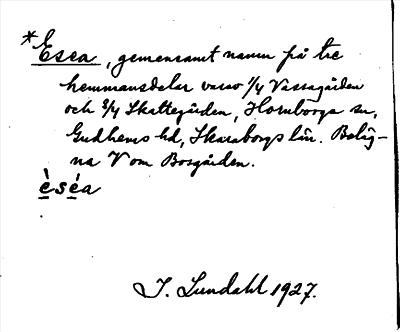 *Esea, gemensamt namn på tre
hemmansdelar varav 1/4 Vässagården
och 3/4 Skattegården, Hornborga sn,
Gudhems hd, Skaraborgs län. Beläg-
na V om Borgården.
èséa
I. Lundahl 1927.